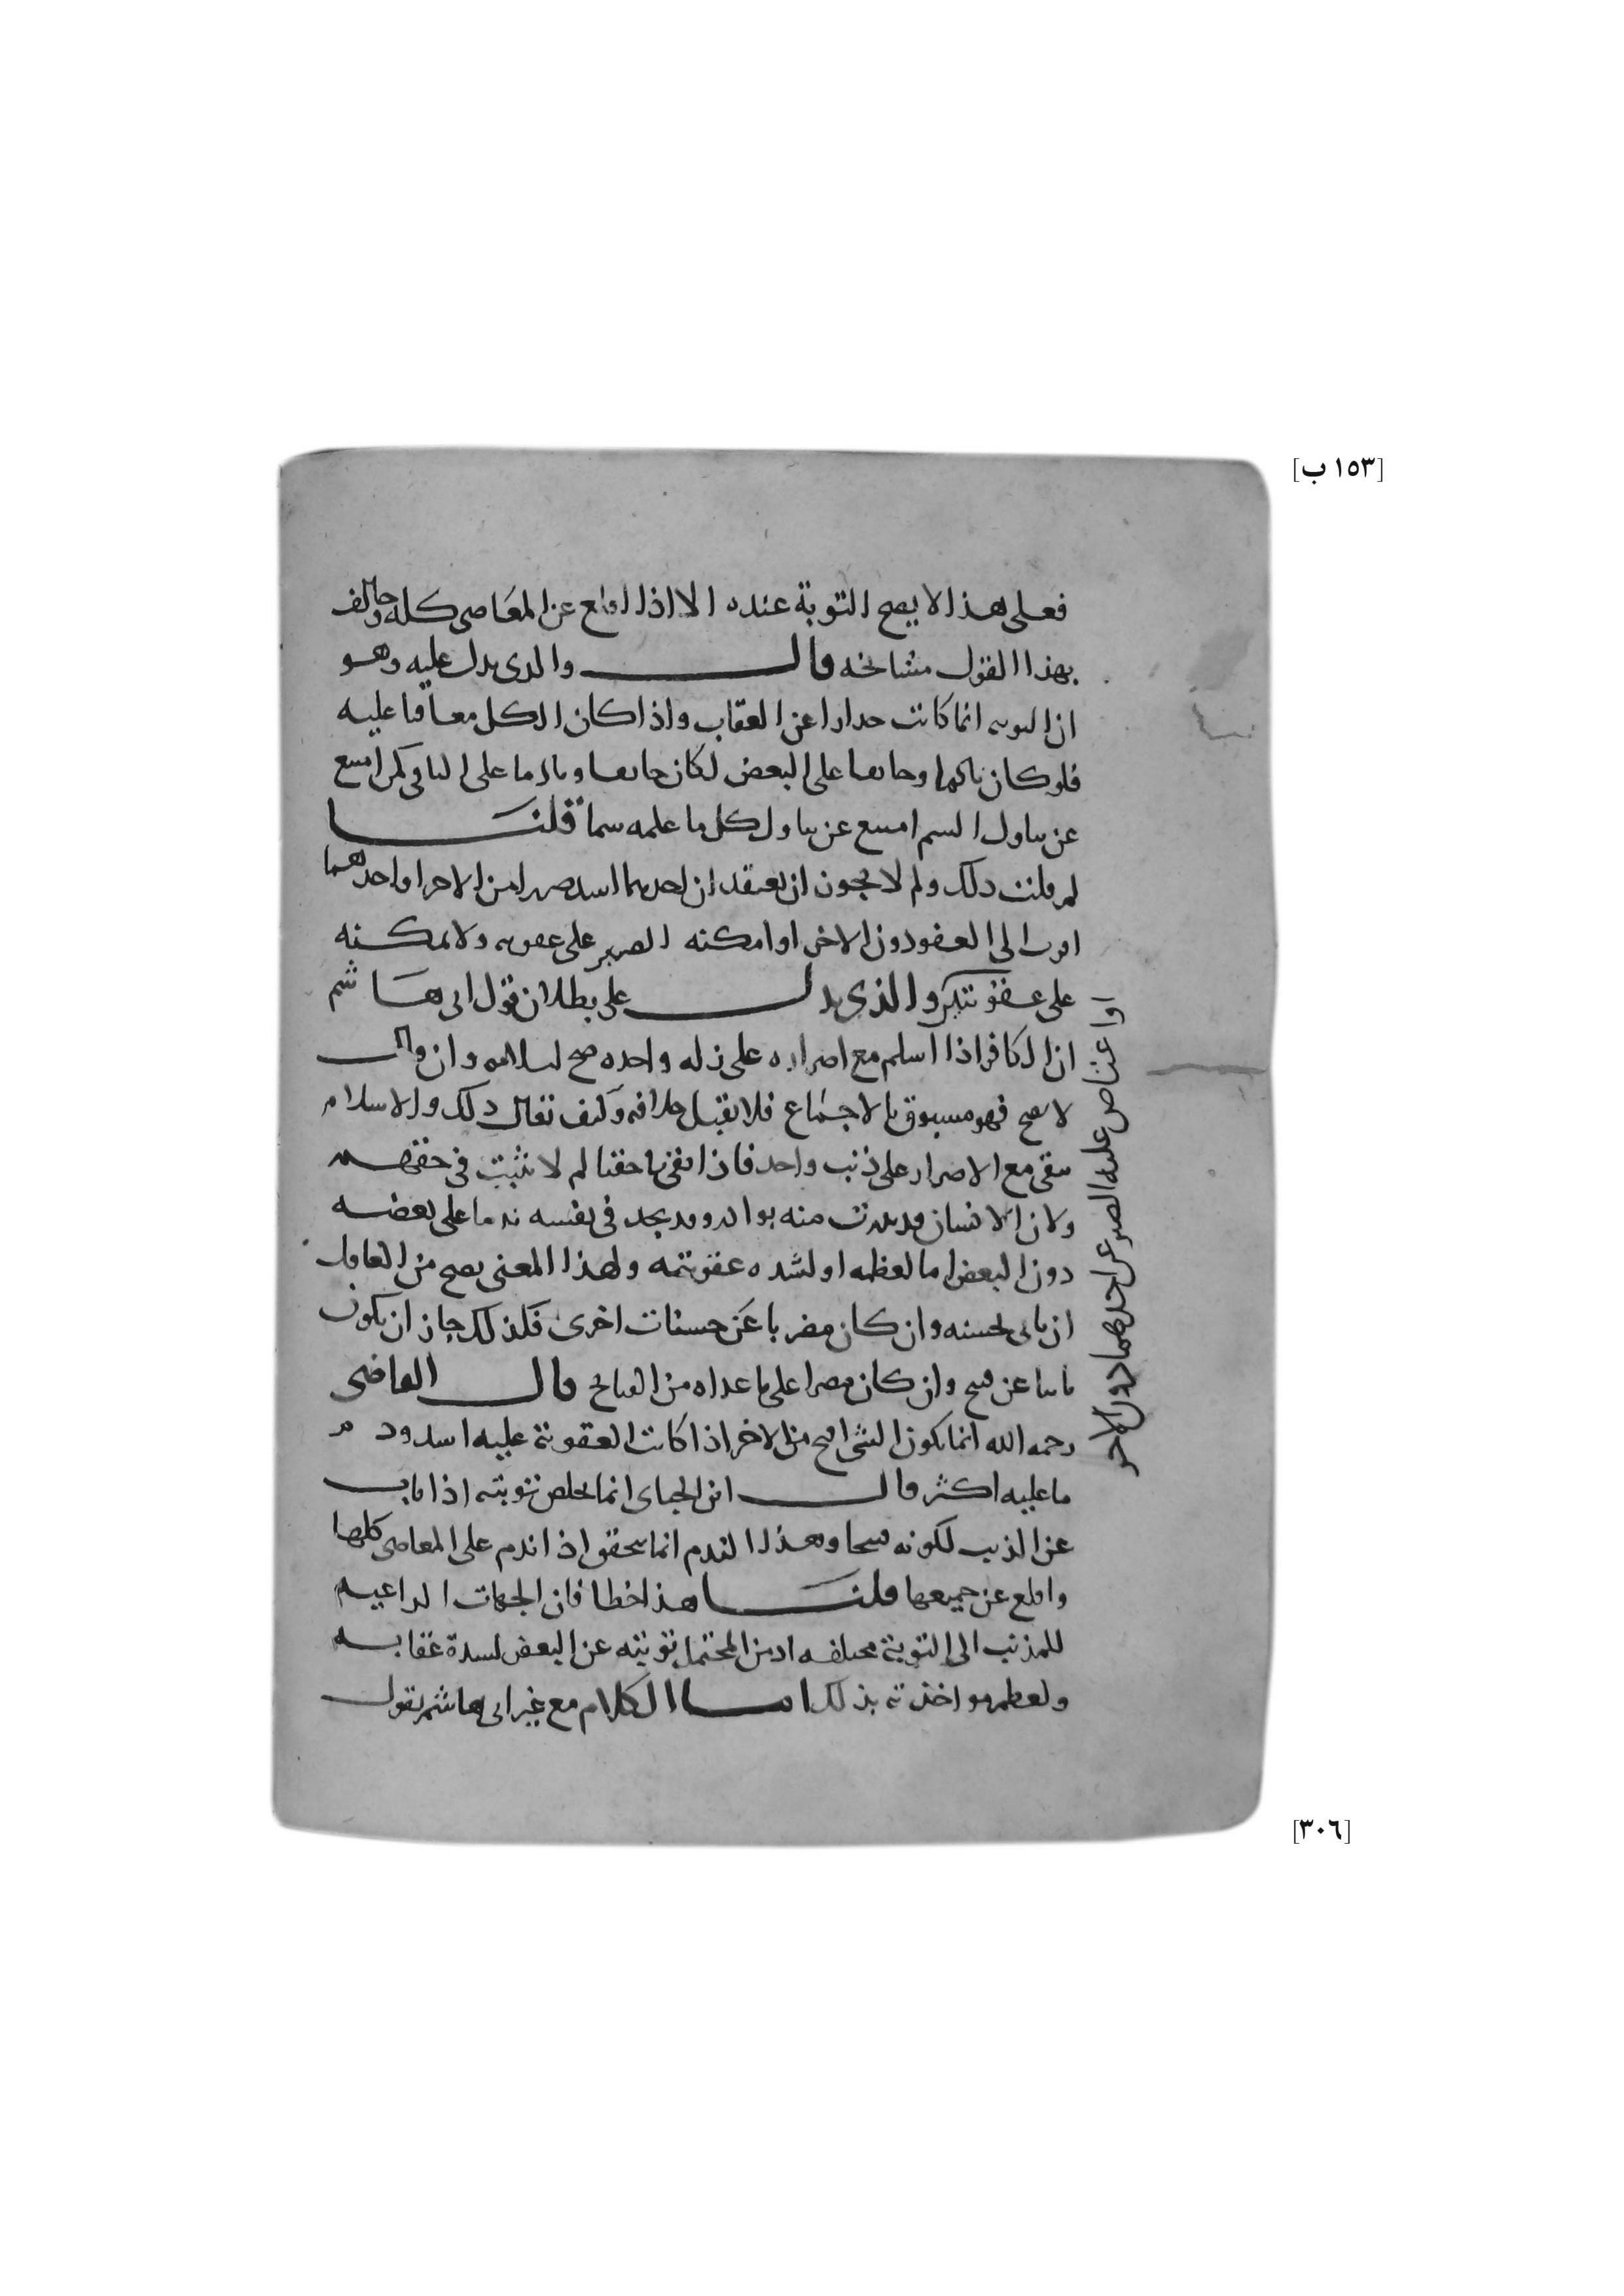 [١٥٣ ب]
فعلى هذا لا يصح التوبة عنده الا اذا اقلع عن المعاصى كلها وخالف
بهذا القول مشائخه قال والذى يدل عليه وهو
ان التوبه انما كانت حذارا عن العقاب واذا كان الكل معاقبا عليه
فلو كان تائبا وخائفا على البعض لكان خائفا ونادما على الباقى كمن امتنع
عن تناول السم امتنع عن تناول كل ما علمه سما قلنا
لم قلت ذلك ولم لا يجوز ان يعتقد ان احدهما اشد ضررا من الاخر او احدهما
اقرب الى العفو دون الاخر او امكنه الصبر على عقوبه ولا يمكنه
على عقوبتين والذى يدل على بطلان قول ابى هاشم
ان الكافر اذا اسلم مع اصراره على زله واحده صح اسلامه وان قال
لا يصح فهو مسبوق بالاجماع فلا يقبل خلافه وكيف يقال ذلك والاسلام
يبقى مع الاصرار على ذنب واحد فاذا بقى باحقنا لم لا يثبت فى حقهم
ولان الانسان قد بدرت منه بوادر وقد يجد فى نفسه ندما على بعضه
دون البعض اما لعظمه او لشده عقوبته ولهذا المعنى يصح من العاقل
ان ياتى بحسنه وان كان مضربا عن حسنات اخرى فكذلك جاز ان يكون
تائبا عن قبيح وان كان مصرا على ما عداه من القبائح قال القاضى
رحمه الله انما يكون الشى اقبح من الاخر اذا كانت العقوبة عليه اشد وذم
ما عليه اكثر قال ابن الجبائى انما يخلص توبته اذا تاب
عن الذنب لكونه قبيحا وهذا الندم انما يتحقق اذا ندم على المعاصى كلها
واقلع عن جميعها قلنا هذا خطا فان الجهات الداعيه
للمذنب الى التوبة مختلفه اذ من المحتمل توبته عن البعض لشدة عقابه
ولعظم مواخذته بذلك اما الكلام مع غير ابى هاشم يقول
او اعتاص عليه الصبر عن احدهما دون الاخر
[٣٠٦]